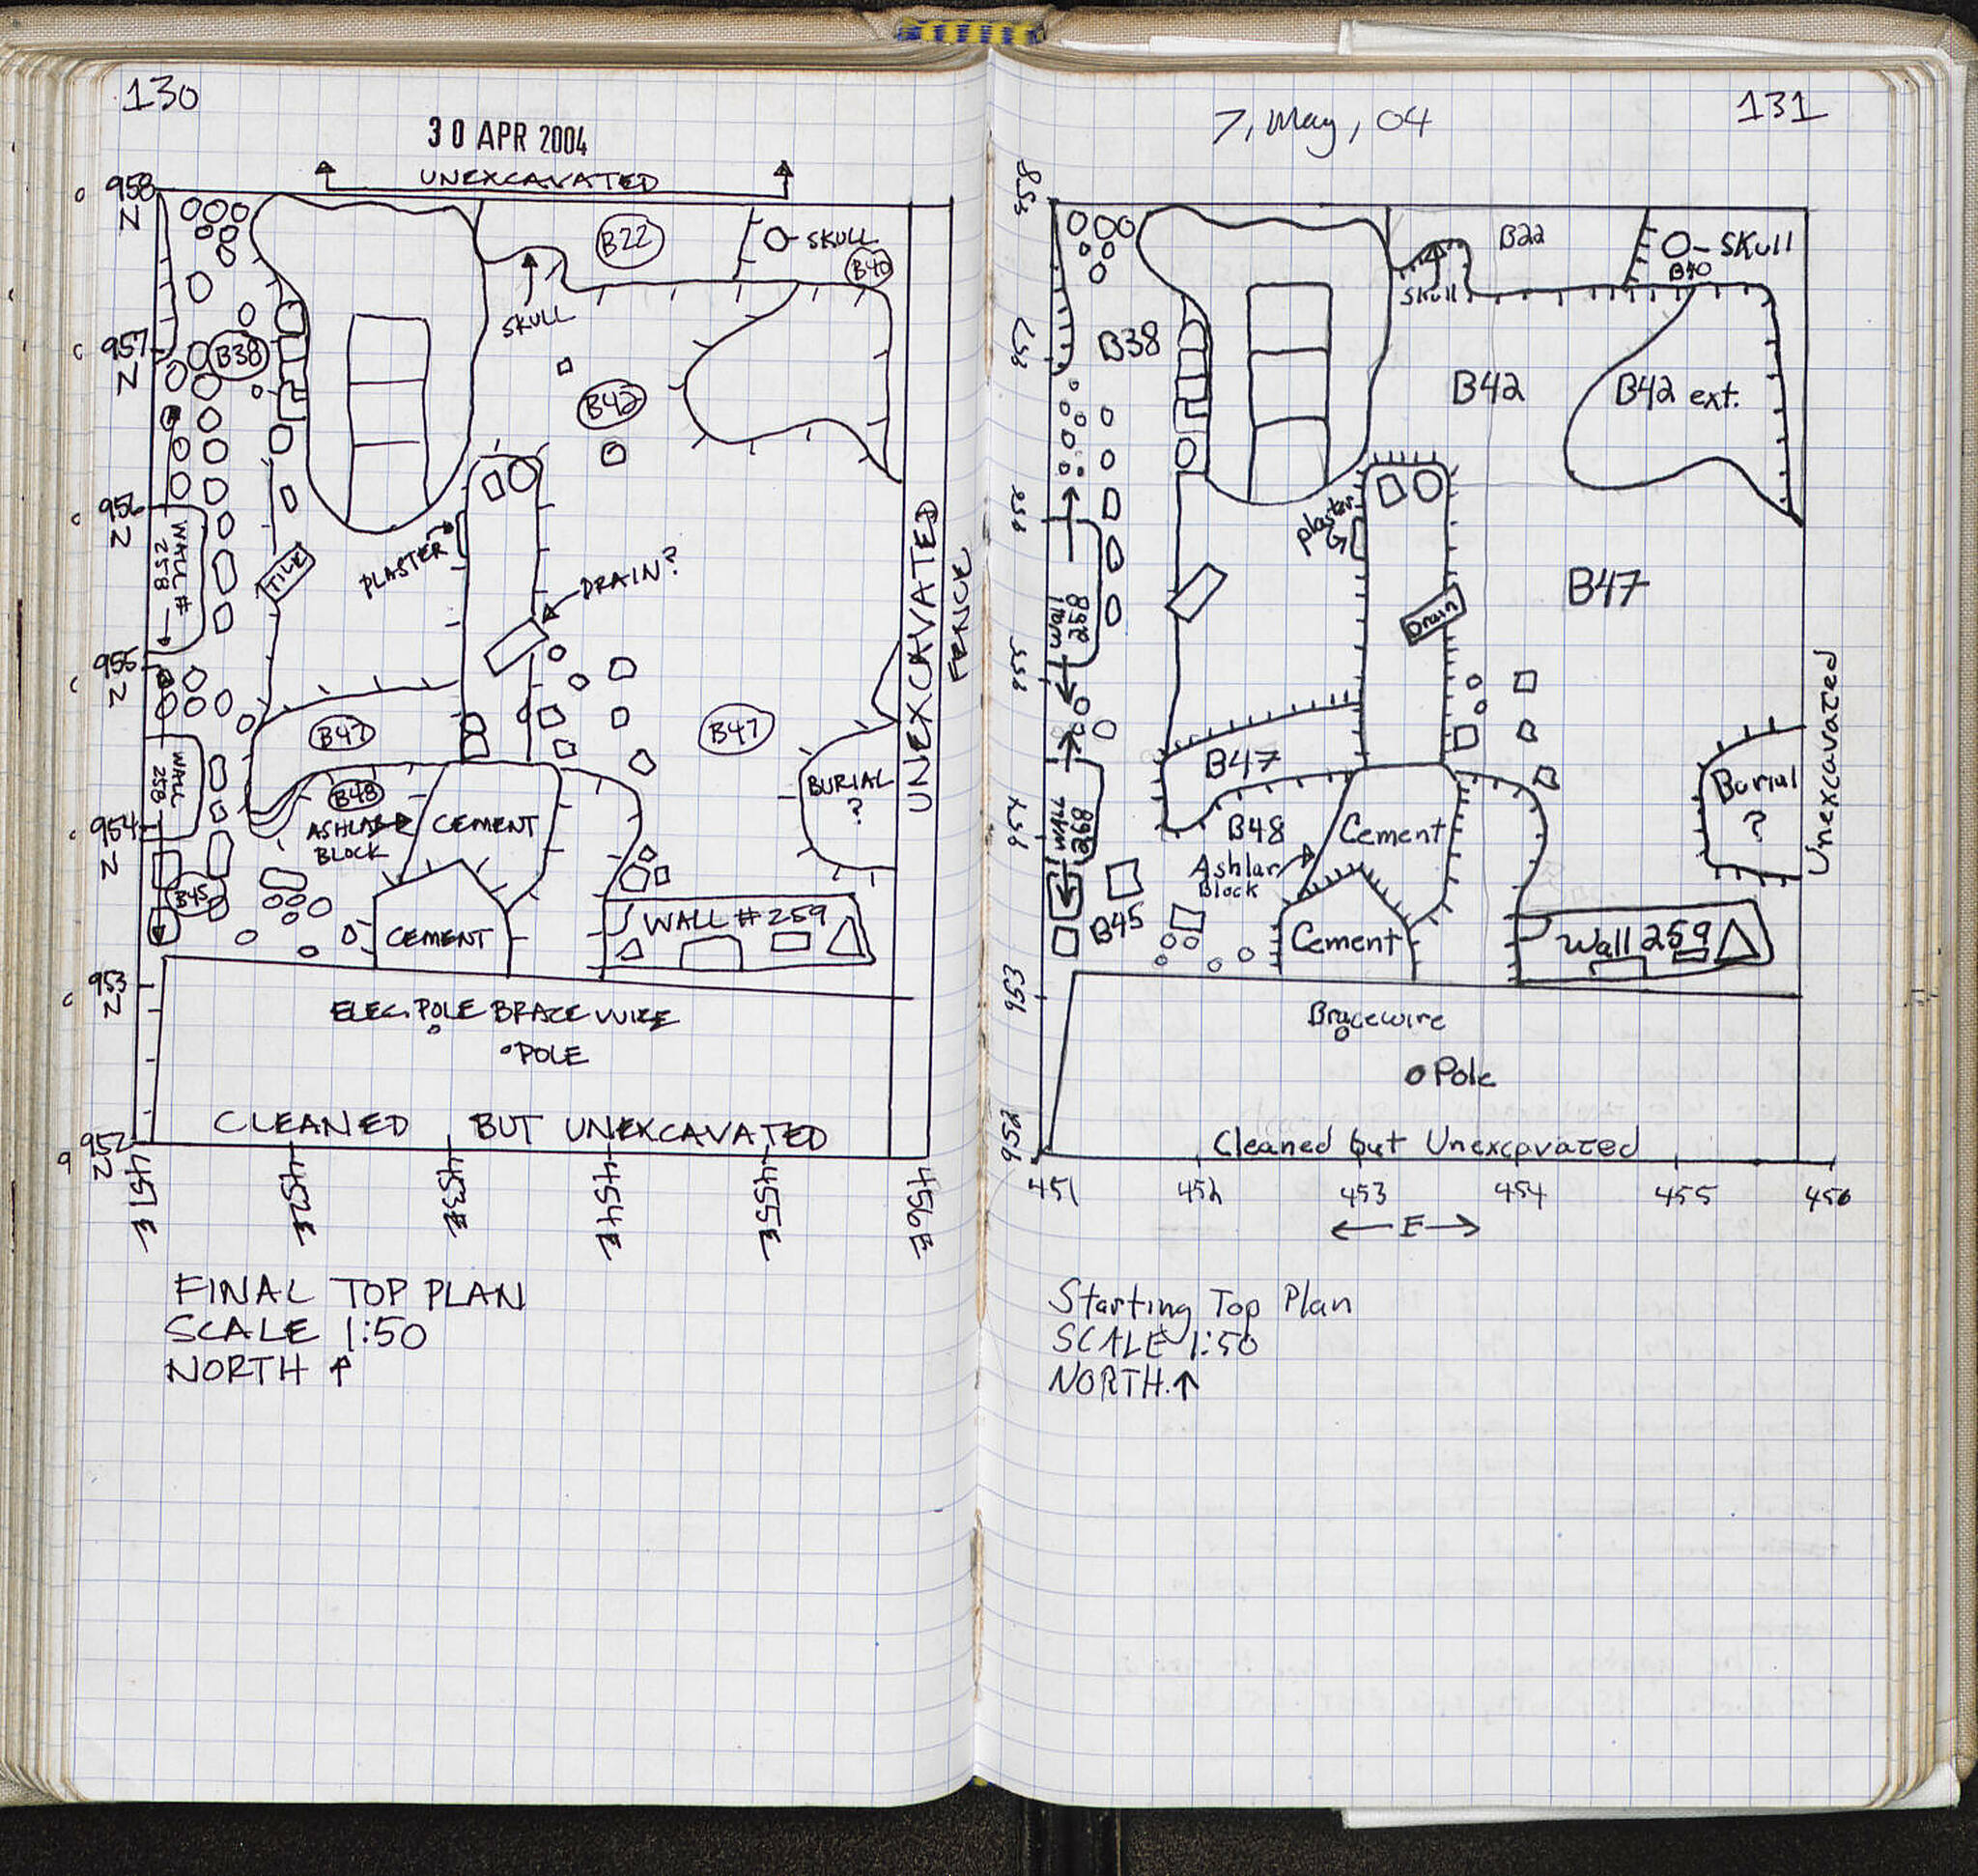 130
30 APR 2004
UNEXCAVATED
958
N
B22
SKULL
B40
SKULL
957
N
B38
B42
956
N
WALL #
258
TILE
PLASTER
DRAIN?
UNEXCAVATED
FENCE
955
N
B47
B47
WALL
258
B48
BURIAL
?
954
N
ASHLAR
BLOCK
CEMENT
B45
CEMENT
WALL # 259
953
N
ELEC. POLE BRACE WIRE
POLE
CLEANED BUT UNEXCAVATED
952
N
451 E
452 E
453 E
454 E
455 E
456 E
FINAL TOP PLAN
SCALE 1:50
NORTH ↑
131
7, May, 04
958
B22
Skull
B40
Skull
957
B38
B42
B42 ext.
956
plaster
B47
Wall
258
Drain
955
Unexcavated
B47
Burial
?
Wall
268
954
B48
Cement
Ashlar
Block
B45
Cement
Wall 259
953
Bracewire
Pole
Cleaned but Unexcavated
952
451 452 453 454 455 456
← E →
Starting Top Plan
SCALE 1:50
NORTH ↑